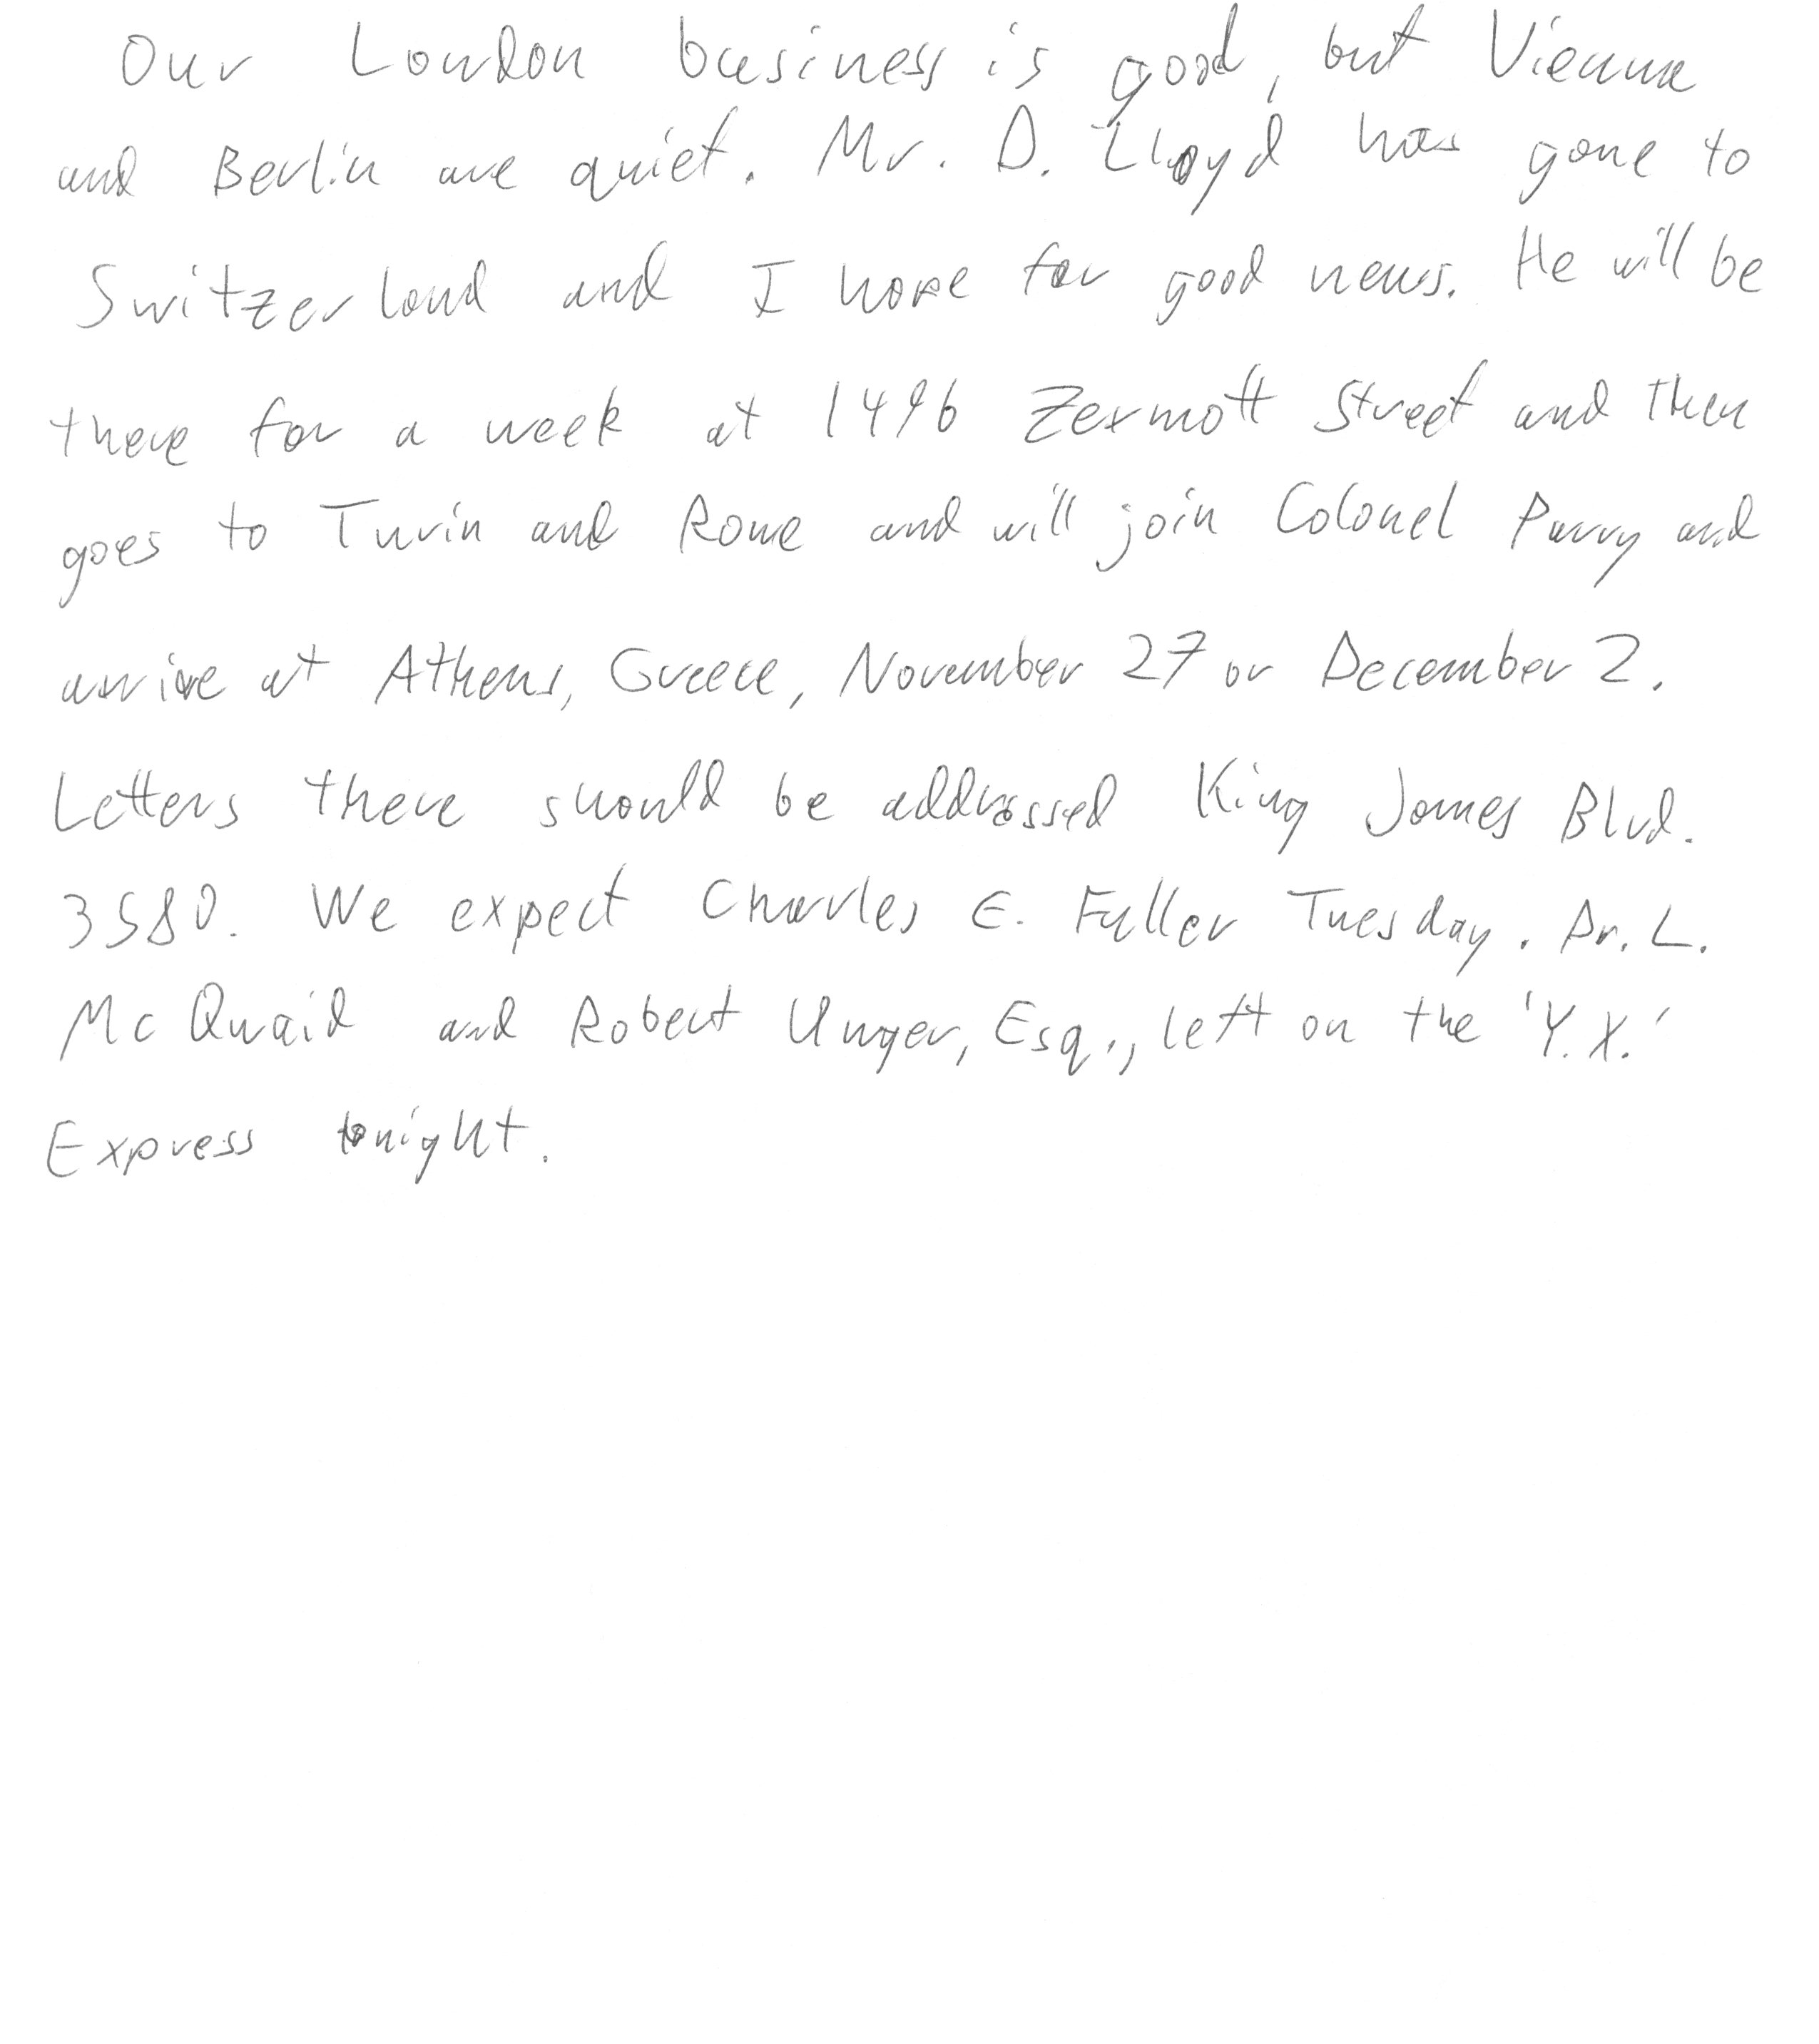 Our London business is good, but Vienna
and Berlin are quiet. Mr. D. Lloyd has gone to
Switzerland and I hope for good news. He will be
there for a week at 1496 Zermott Street and then
goes to Turin and Rome and will join Colonel Parry and
arrive at Athens, Greece, November 27 or December 2.
Letters there should be addressed King James Blvd.
3580. We expect Charles E. Fuller Tuesday. Dr. L.
McQuaid and Robert Unger, Esq., left on the 'Y.X.'
Express tonight.